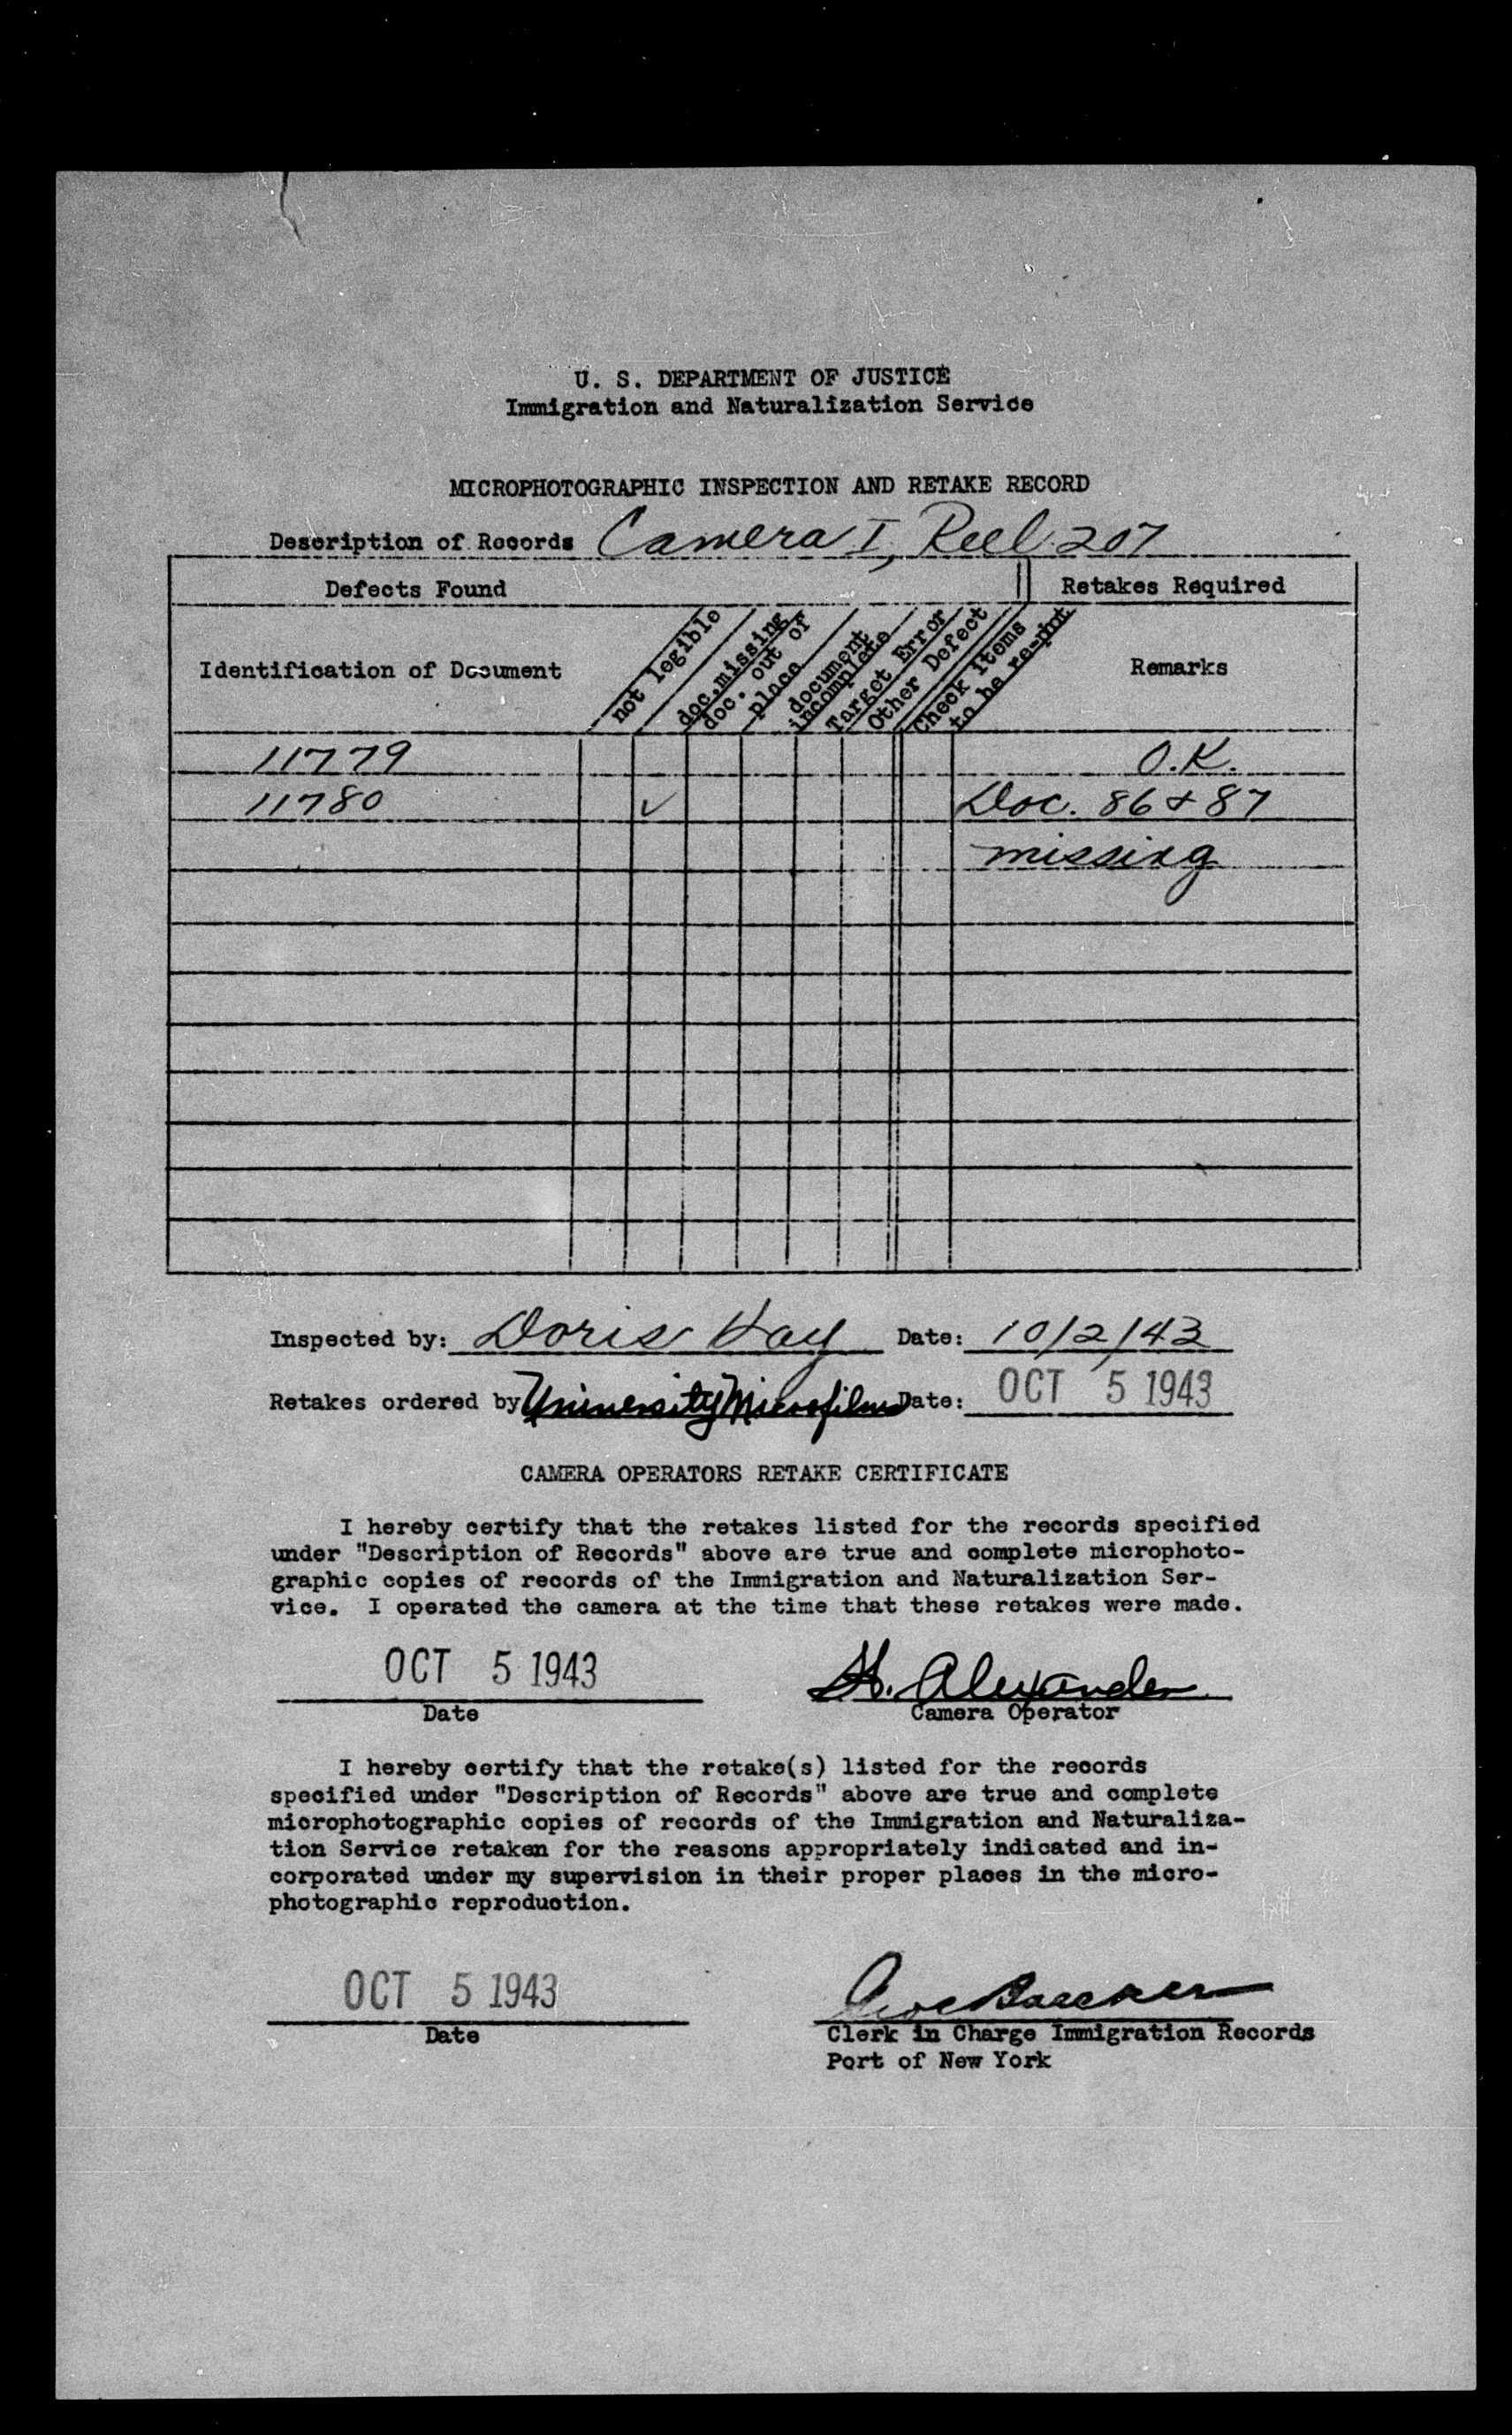 U. S. DEPARTMENT OF JUSTICE
Immigration and Naturalization Service
MICROPHOTOGRAPHIC INSPECTION AND RETAKE RECORD
Description of Records Camera I, Reel 207
Defects Found Retakes Required
Identification of Document
not legible
doc. missing
doc. out of
place
document
incomplete
Target Error
Other Defect
Check items
to be re-pht
Remarks
11779 O.K.
11780 ✓ Doc. 86 & 87
missing
Inspected by: Doris Hay Date: 10/2/43
Retakes ordered by University Microfilms Date: OCT 5 1943
CAMERA OPERATORS RETAKE CERTIFICATE
I hereby certify that the retakes listed for the records specified
under "Description of Records" above are true and complete microphoto-
graphic copies of records of the Immigration and Naturalization Ser-
vice. I operated the camera at the time that these retakes were made.
OCT 5 1943 H. Alexander
Date Camera Operator
I hereby certify that the retake(s) listed for the records
specified under "Description of Records" above are true and complete
microphotographic copies of records of the Immigration and Naturaliza-
tion Service retaken for the reasons appropriately indicated and in-
corporated under my supervision in their proper places in the micro-
photographic reproduction.
OCT 5 1943
Date Clerk in Charge Immigration Records
Port of New York